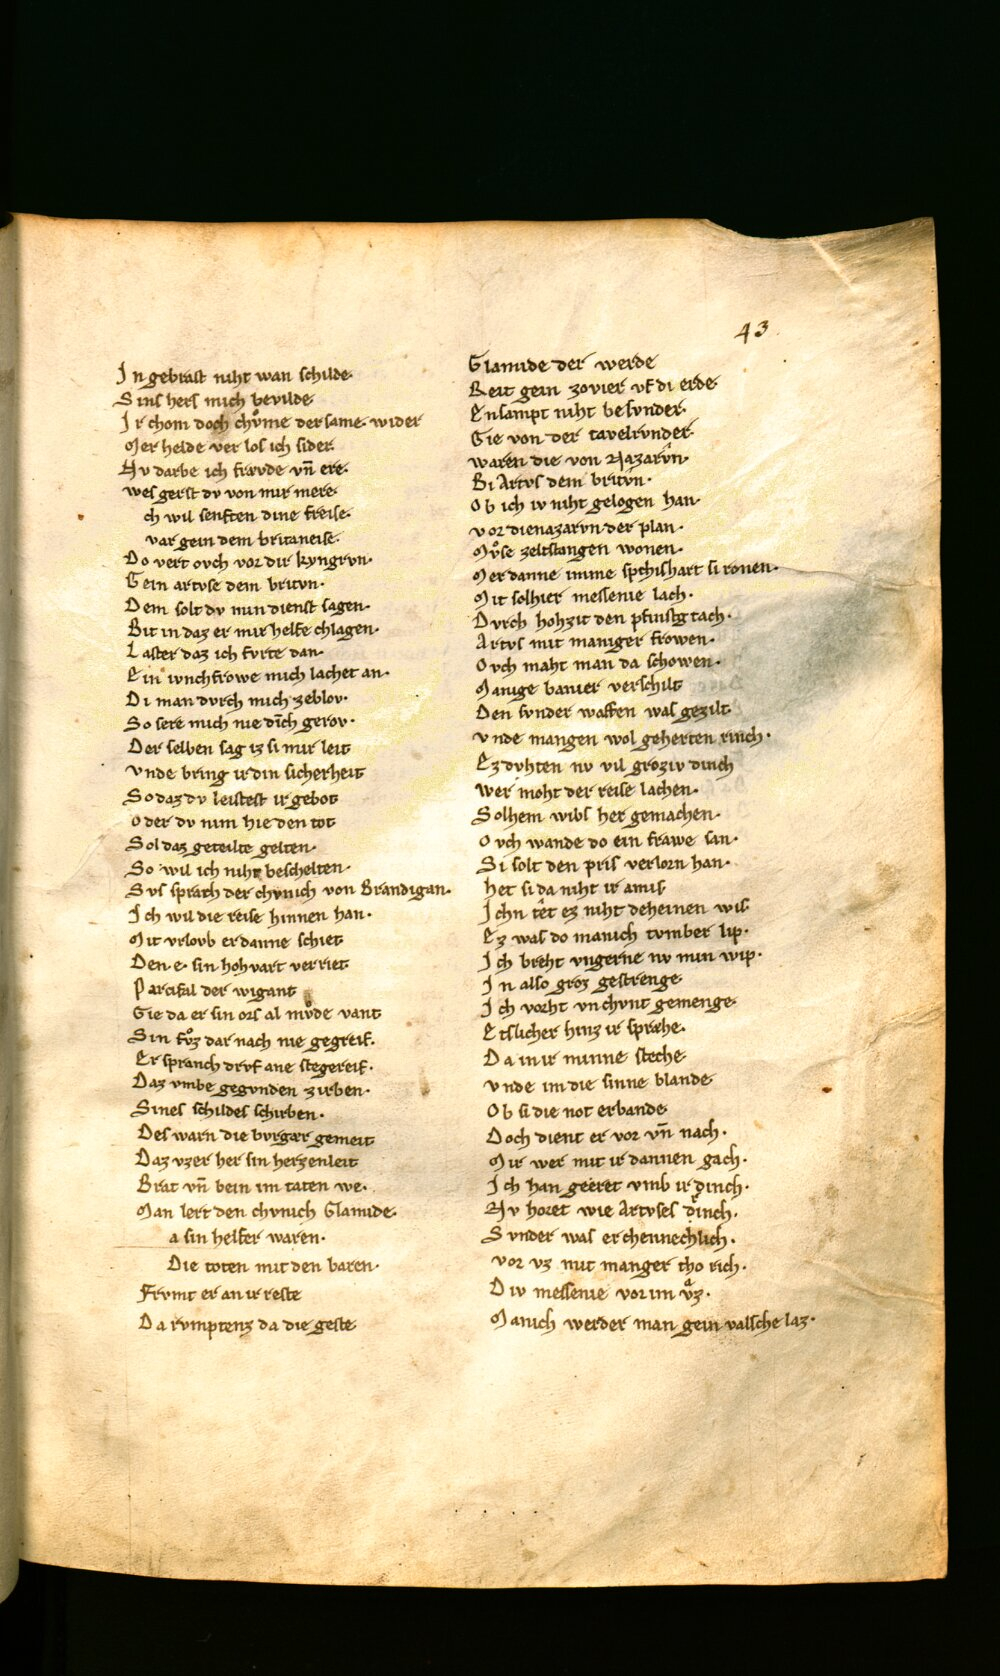 43
In gebrast niht wan schilde·
Sins hers mich bevilde
Ir chom doch chůme der same wider
Mer helde ver los ich sider
Nv darbe ich frævde vn̄ ere·
wes gerst dv von mir mere·
ch wil senften dine freise·
var gein dem britaneise·
Do vert ovch vor dir kyngrvn·
Gein artvse dem britvn·
Dem solt dv min dienst sagen·
Bit in daz er mir helfe chlagen·
Laster daz ich fvrte dan·
Ein ivnchfrowe mich lachet an·
Di man dvrch mich zeblov·
So sere mich nie dīch gerov·
Der selben sag iz si mir leit
vnde bring ir din sicherheit
So daz dv leistest ir gebot
oder dv nim hie den tot
Sol daz geteilte gelten·
So wil ich niht beschelten·
Svs sprach der chvnich von Brandigan·
Ich wil die reise hinnen han·
Mit vrlovb er danne schiet
Den·e· sin hohvart verriet
Parcifal der wigant
Gie da er sin ors al mvͦde vant
Sin fvͦz dar nach nie gegreif·
Er spranch drvf ane stegereif·
Daz vmbe gegvnden zirben·
Sines schildes schirben·
Des warn die bvrgær gemeit
Daz vzer her sin herzenleit
Brat vn̄ bein im taten we·
Man lert den chvnich Clamide·
a sin helfer waren·
Die toten mit den baren·
Frvmt er an ir reste
Da rvmptenz da die geste
Clamide der werde
Reit gein zovier vf di erde
Ensampt niht besvnder·
Gie von der tavelrvnder·
waren die von Nazarv̂n·
Bi Artvs dem britv̂n·
Ob ich iv niht gelogen han·
vor dienazarvn der plan·
Mvͦse zeltstangen wonen·
Mer danne imme spehishart si ronen·
Mit solhier messenie lach·
Dvrch hohzit den pfinstg tach·
Artvs mit maniger frowen·
Ovch maht man da schowen·
Manige banier verschilt
Den svnder waffen was gezilt
vnde mangen wol geherten rinch·
Ez dvhten nv vil groziv dinch
wer moht der reise lachen·
Solhem wibs her gemachen·
Ovch wande do ein frawe san·
Si solt den pris verlorn han·
het si da niht ir amis
Ichn têt ez niht deheinen wis
Ez was do manich tvmber lip·
Ich breht vngerne nv min wip·
In also groz gestrenge
Ich vorht vnchvnt gemenge·
Etslicher hinz ir sprahe·
Da in ir minne steche
vnde im die sinne blande
Ob si die not erbande
Doch dient er vor vn̄ nach·
Mir wer mit ir dannen gach·
Ich han geeret vmb ir dinch·
Nv horet wie Artvses drinch·
Svnder was erchennechlich·
vor vz mit manger cho rich·
Div messenie vor im vͣz·
Manich werder man gein valsche laz·